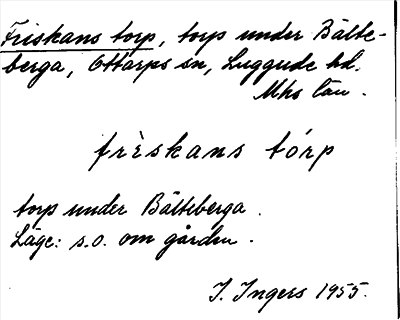 Friskans torp, torp under Bälte-
berga, Ottarps sn, Luggude hd.
Mhs län.
frèskans tórp
torp under Bälteberga.
Läge: s.o. om gården.
I. Ingers 1955.